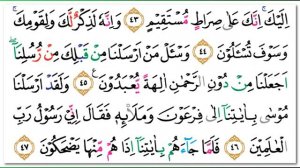 اِلَيْكَۚ اِنَّكَ عَلٰى صِرَاطٍ مُّسْتَقِيْمٍ ٤٣ وَاِنَّهٗ لَذِكْرٌ لَّكَ وَلِقَوْمِكَۚ
وَسَوْفَ تُسْـَٔلُوْنَ ٤٤ وَسْـَٔلْ مَنْ اَرْسَلْنَا مِنْ قَبْلِكَ مِنْ رُّسُلِنَآ
اَجَعَلْنَا مِنْ دُوْنِ الرَّحْمٰنِ اٰلِهَةً يُّعْبَدُوْنَ ٤٥ وَلَقَدْ اَرْسَلْنَا
مُوْسٰى بِاٰيٰتِنَآ اِلٰى فِرْعَوْنَ وَمَلَا۟ىِٕهٖ فَقَالَ اِنِّيْ رَسُوْلُ رَبِّ
الْعٰلَمِيْنَ ٤٦ فَلَمَّا جَاۤءَهُمْ بِاٰيٰتِنَآ اِذَا هُمْ مِّنْهَا يَضْحَكُوْنَ ٤٧